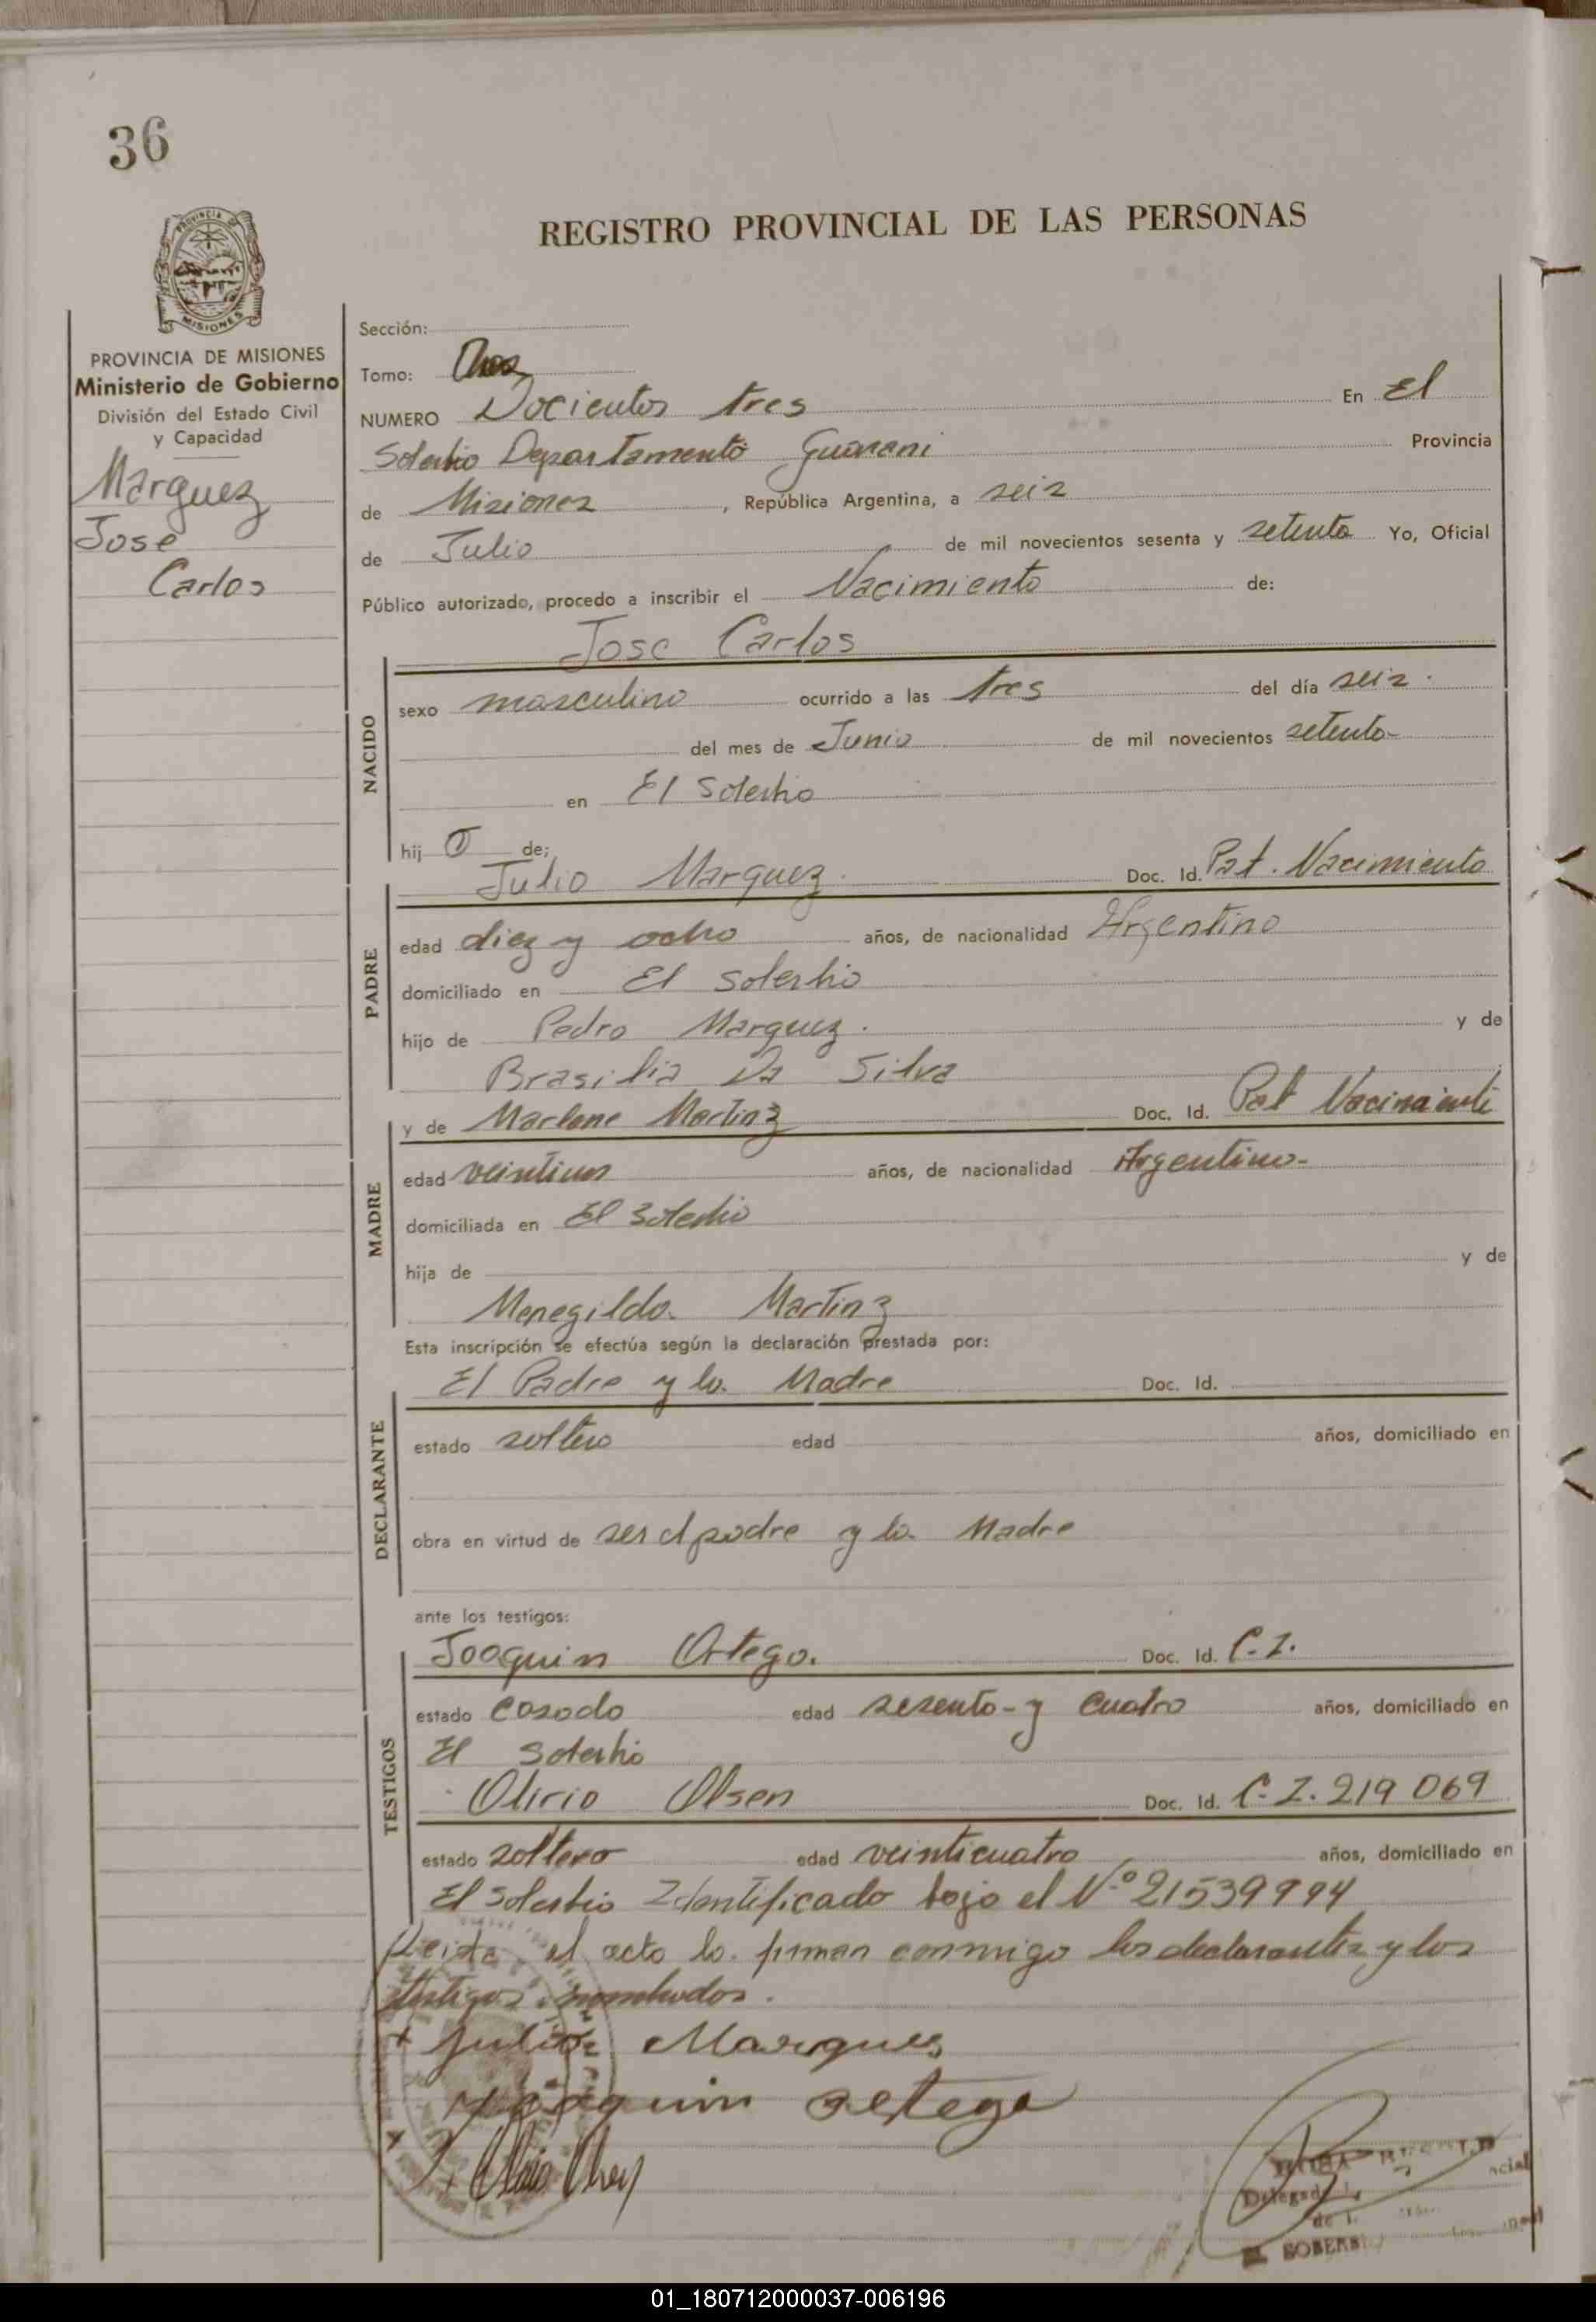 36
REGISTRO PROVINCIAL DE LAS PERSONAS
PROVINCIA DE MISIONES
Ministerio de Gobierno
División del Estado Civil
y Capacidad
Marquez
Jose
Carlos
Sección:
Tomo:
NUMERO Docientos tres En El
Soberbio Departamento Guarani Provincia
de Misiones , República Argentina, a seis
de Julio de mil novecientos sesenta y setenta Yo, Oficial
Público autorizado, procedo a inscribir el Nacimiento de:
Jose Carlos
NACIDO
sexo masculino ocurrido a las tres del día seis.
del mes de Junio de mil novecientos setenta
en El Soberbio
hij o de:
Julio Marquez. Doc. Id. Pat. Nacimiento
PADRE
edad diez y ocho años, de nacionalidad Argentino
domiciliado en El Soberbio
hijo de Pedro Marquez. y de
Brasilia Da Silva
y de Marlene Martinz Doc. Id. Pat Nacimiento
MADRE
edad veintiun años, de nacionalidad Argentino-
domiciliada en El Soberbio
hija de y de
Menegildo Martinz
Esta inscripción se efectúa según la declaración prestada por:
El Padre y la Madre Doc. Id.
DECLARANTE
estado soltero edad años, domiciliado en
obra en virtud de ser el padre y la Madre
ante los testigos:
Joaquin Ortega. Doc. Id. C.I.
TESTIGOS
estado casado edad sesenta-y cuatro años, domiciliado en
El Soberbio
Olirio Olsen Doc. Id. C.I. 219 069
estado soltero edad veinticuatro años, domiciliado en
El Soberbio Identificado bajo el N.º 21539994
Leida el acta la firman conmigo los declarantes y los
testigos nombrados.
+ Julio Marques
Joaquin ortega
Delegad
EL SOBERBIO
01_180712000037-006196